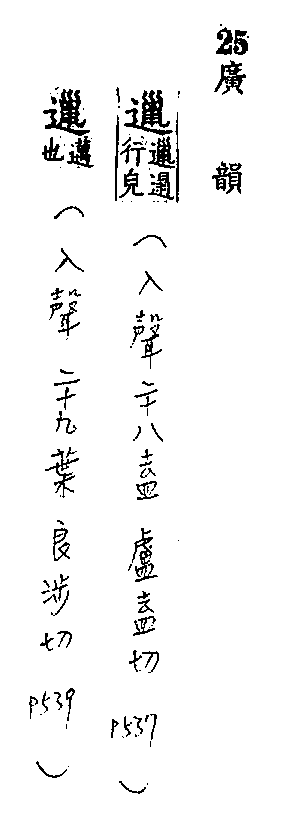 25廣韻
邋邋遢行皃（入聲二十八盍盧盍切P537）
邋邁也（入聲二十九葉良涉切P539）